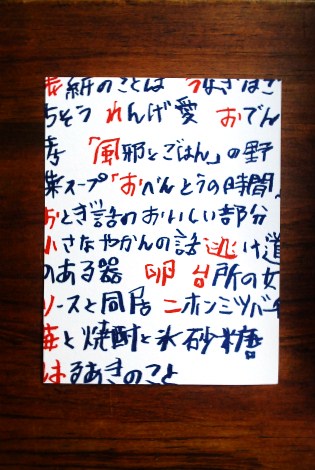 表紙のことば うなぎはご
ちそう れんげ愛 おでん
考 「風邪とごはん」の野
菜スープ「おべんとうの時間」
おとぎ話のおいしい部分
小さなやかんの話 逃げ道
のある器 卵 台所の女
ソースと同居 ニホンミツバチ
苺と焼酎と氷砂糖
はるあきのこと